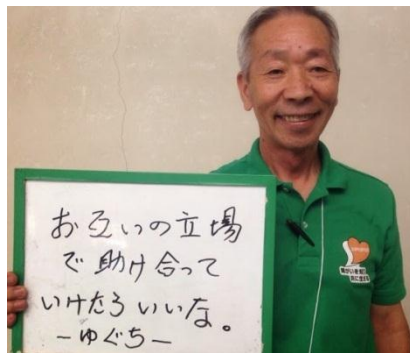 お互いの立場
で助け合って
いけたらいいな。
ーゆぐちー